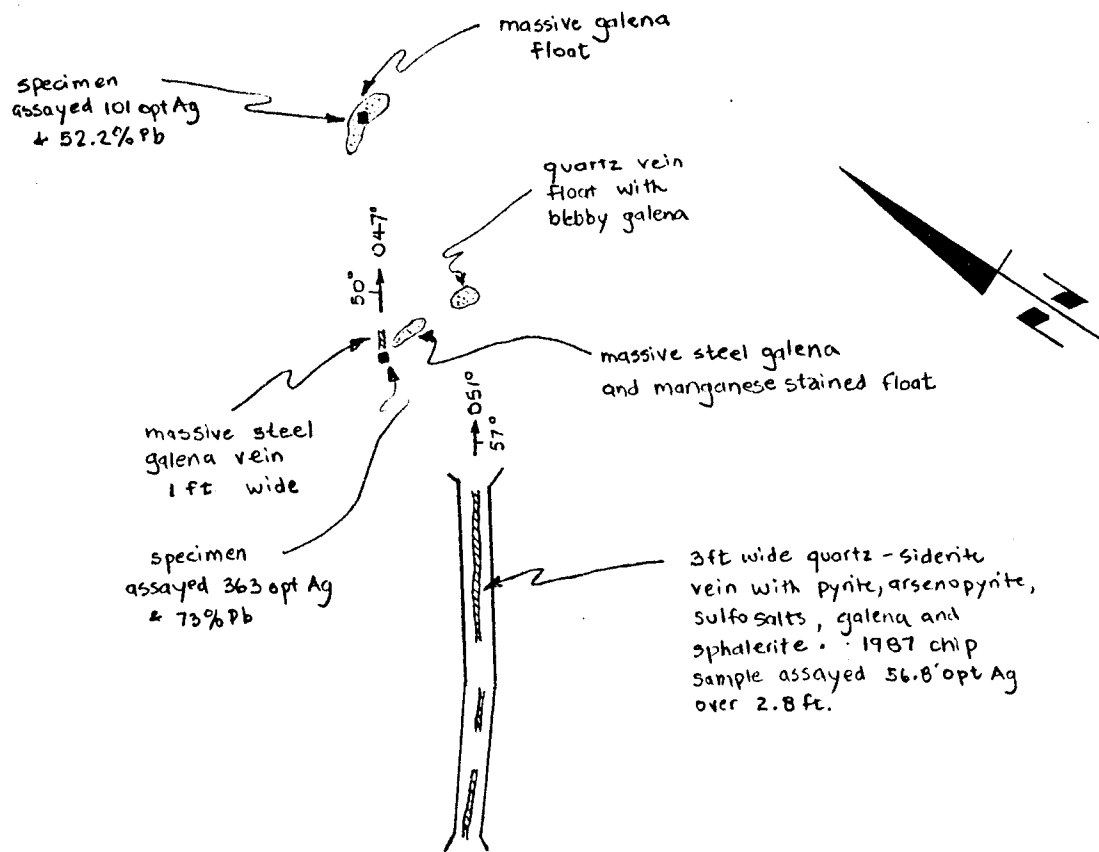 massive galena
float
specimen
assayed 101 opt Ag
& 52.2% Pb
quartz vein
float with
blebby galena
50°
047°
massive steel galena
and manganese stained float
051°
57°
massive steel
galena vein
1 ft wide
specimen
assayed 363 opt Ag
& 73% Pb
3ft wide quartz - siderite
vein with pyrite, arsenopyrite,
sulfosalts, galena and
sphalerite. 1987 chip
sample assayed 56.8 opt Ag
over 2.8 ft.